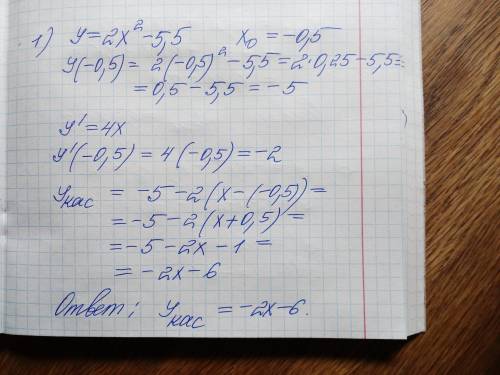 1) y = 2x² - 5,5 x₀ = -0,5
y(-0,5) = 2(-0,5)² - 5,5 = 2·0,25 - 5,5 =
= 0,5 - 5,5 = -5
y' = 4x
y'(-0,5) = 4(-0,5) = -2
Yкас = -5 - 2(x - (-0,5) =
= -5 - 2(x + 0,5) =
= -5 - 2x - 1 =
= -2x - 6
Ответ: Yкас = -2x - 6.